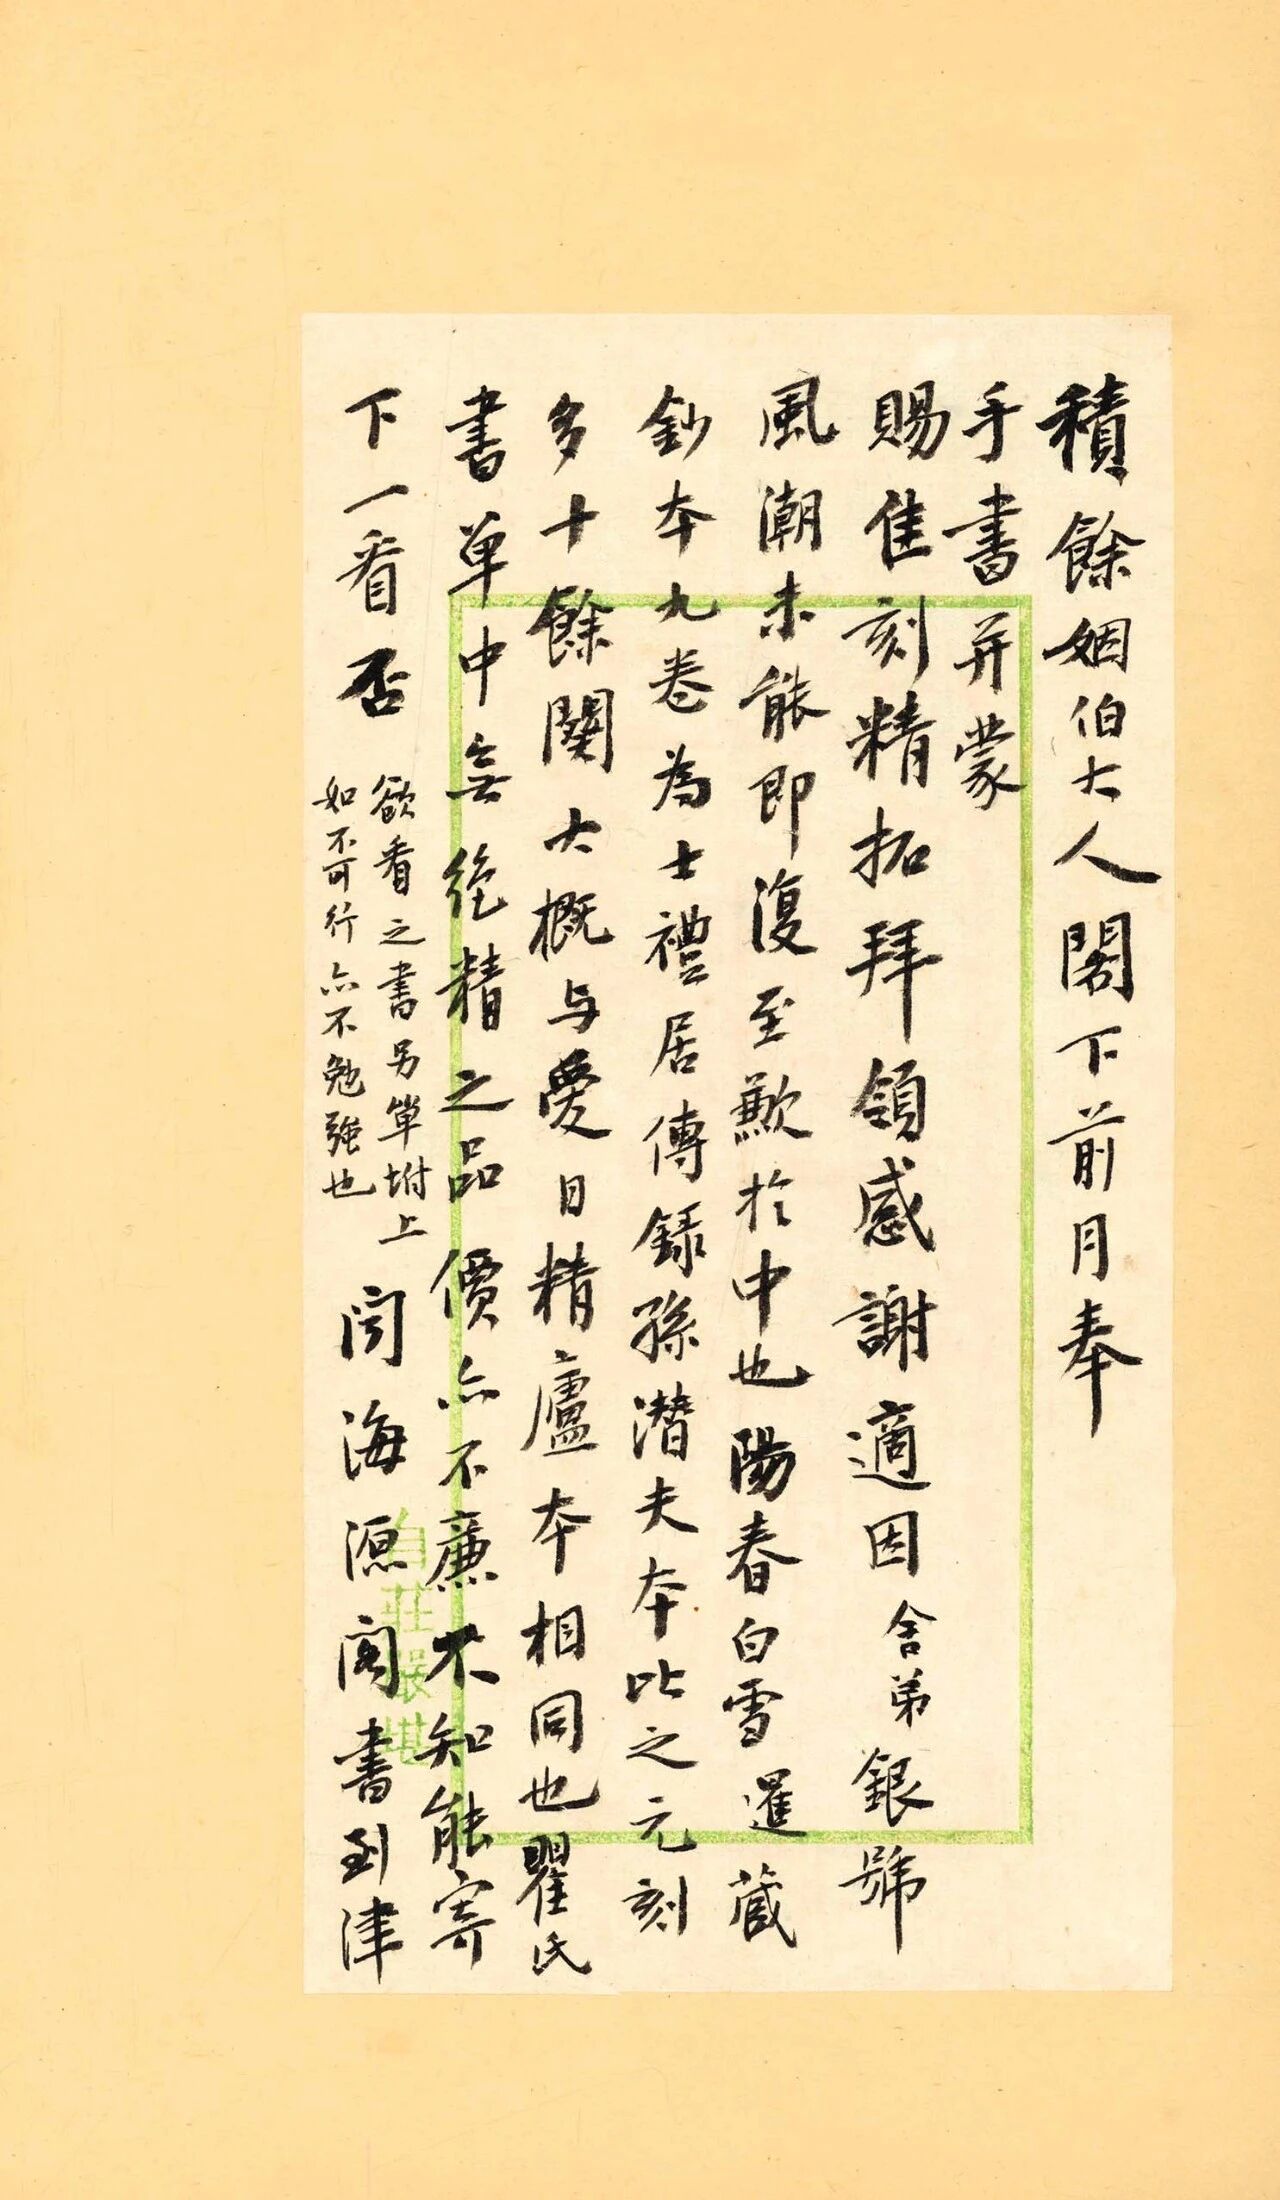 積餘姻伯大人閣下前月奉
手書并蒙
賜佳刻精拓拜領感謝適因舍弟銀號
風潮未能即復至歉於中也陽春白雪暹藏
鈔本九卷為士禮居傳錄孫潛夫本比之元刻
多十餘闋大概与愛日精廬本相同也瞿氏
書單中無絶精之品價亦不廉不知能寄
下一看否
欲看之書另單坿上
如不可行亦不勉強也
聞海源閣書到津
自莊嚴堪